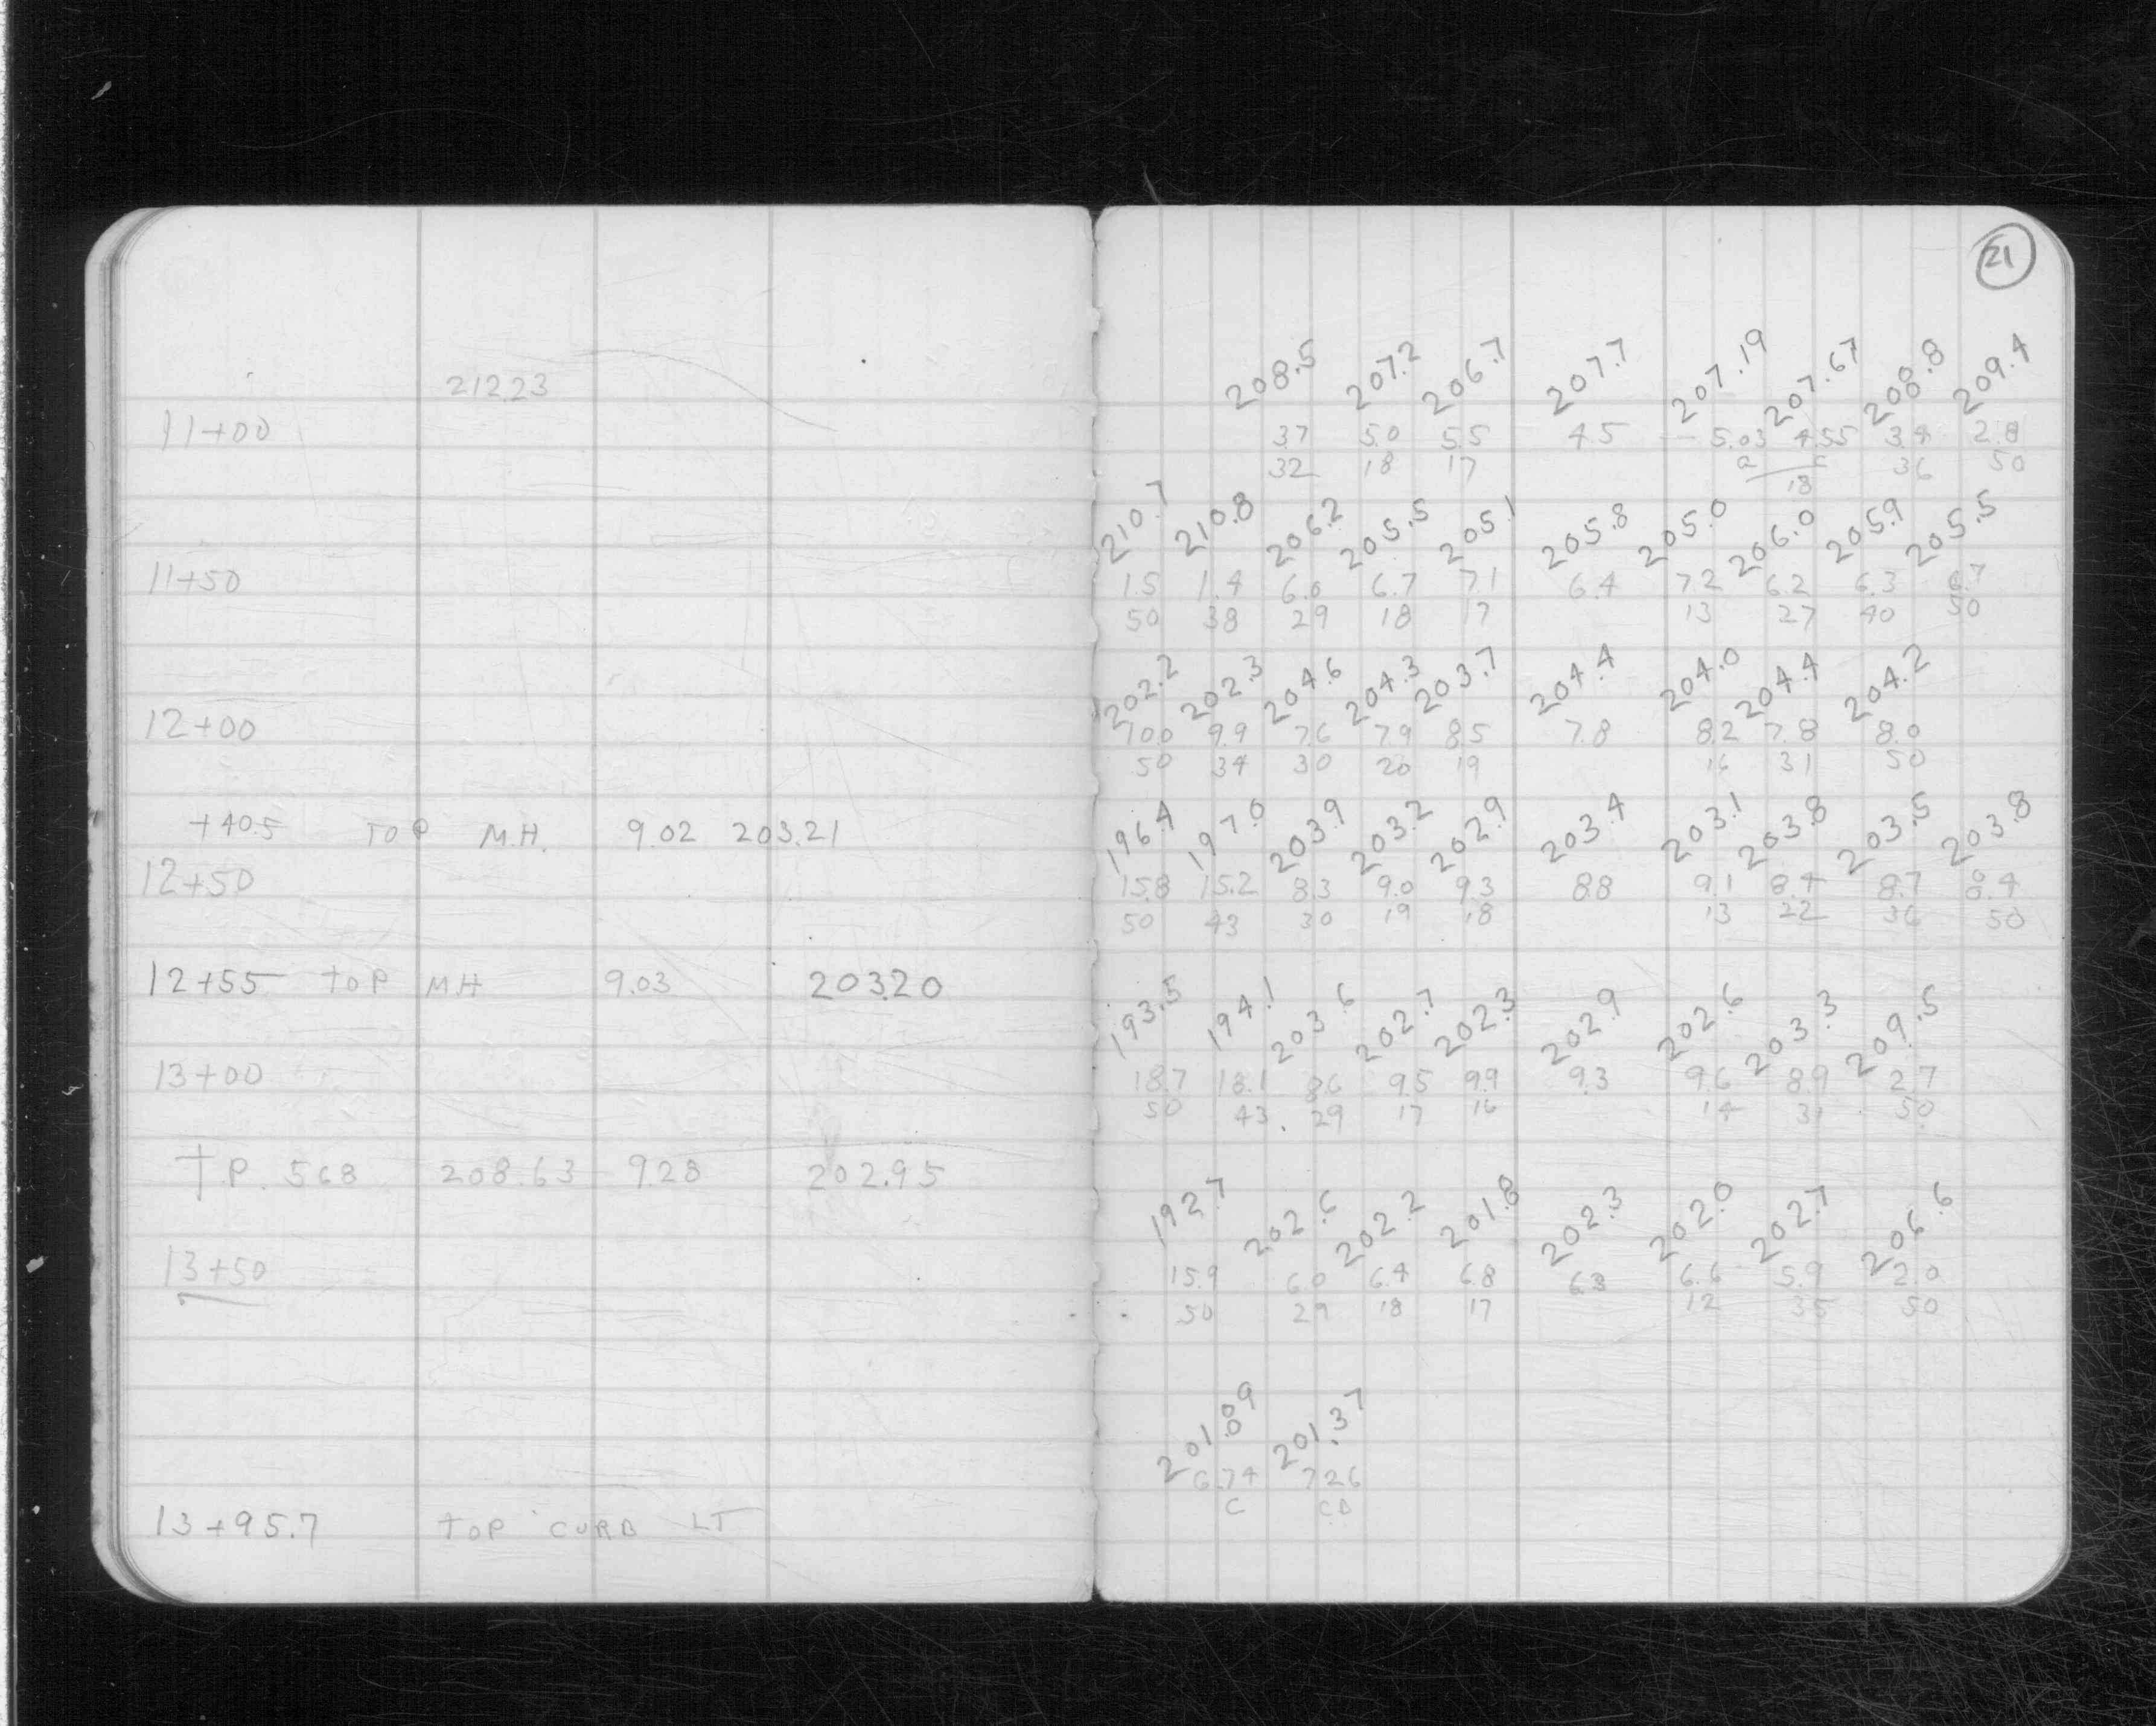 21
212.23
208.5 207.2 206.7 207.7 207.19 207.67 208.8 209.4
11+00
3.7 5.0 5.5 4.5 5.03 4.55 3.4 2.8
32 18 17 36 50
18
210.7 210.8 206.2 205.5 205.1 205.8 205.0 206.0 205.9 205.5
11+50
1.5 1.4 6.0 6.7 7.1 6.4 7.2 6.2 6.3 6.7
50 38 29 18 17 13 27 40 50
202.2 202.3 204.6 204.3 203.7 204.4 204.0 204.4 204.2
12+00
10.0 9.9 7.6 7.9 8.5 7.8 8.2 7.8 8.0
50 34 30 20 19 16 31 50
+40.5 TOP M.H. 9.02 203.21
196.4 197.0 203.9 203.2 202.9 203.4 203.1 203.8 203.5 203.8
12+50
15.8 15.2 8.3 9.0 9.3 8.8 9.1 8.4 8.7 8.4
50 43 30 19 18 13 22 36 50
12+55 TOP MH 9.03 203.20
193.5 194.1 203.6 202.7 202.3 202.9 202.6 203.3 209.5
13+00
18.7 18.1 8.6 9.5 9.9 9.3 9.6 8.9 2.7
50 43 29 17 16 14 31 50
T.P. 5.68 208.63 9.28 202.95
192.7 202.6 202.2 201.8 202.3 202.0 202.7 206.6
13+50
15.9 6.0 6.4 6.8 6.3 6.6 5.9 2.0
50 29 18 17 12 35 50
201.89 201.37
6.74 7.26
C CB
13+95.7 TOP CURB LT